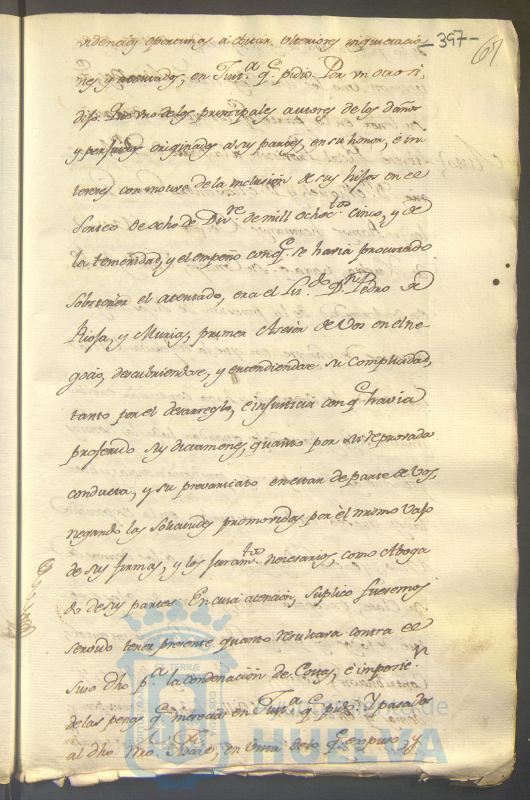 -397- 67
videncias oportunas a evitar ulteriores inquietacio
nes y atentados, en Just.a q.e pidio. Por un otro si,
dijo: Que uno de los principales autores de los daños
y perjuicios originados a sus partes, en su honor, é in
tereses con motivo de la inclusion de sus hijos en el
Sorteo de ocho de Div.re de mill ochoc.tos cinco, y de
la temeridad, y el empeño con q.e se havia procurado
sobstener el atentado, era el Liz.do D.n Pedro de
Riosa, y Murias, primer Asesor de Vos en el ne
gocio, descubriendose, y entendiendose su Complicidad,
tanto por el desarreglo, é injusticia con q.e havia
proferido sus dictamenes, quanto por su reprovada
conducta, y su prevaricato en estar de parte de Vos,
negando las Solicitudes promovidas por el mismo bajo
de sus firmas, y los juram.tos necesarios, como Aboga
do de sus partes. En cuia atención, suplico fuesemos
servido tener presente quanto resultara contra el
suso dho p.a la condenación de Costas, é imponer
de las penas q.e merecia en Just.a q.e pidio. Y pasados
al dho nro Fiscal, en vista de lo q.e expuso, y
HUELVA